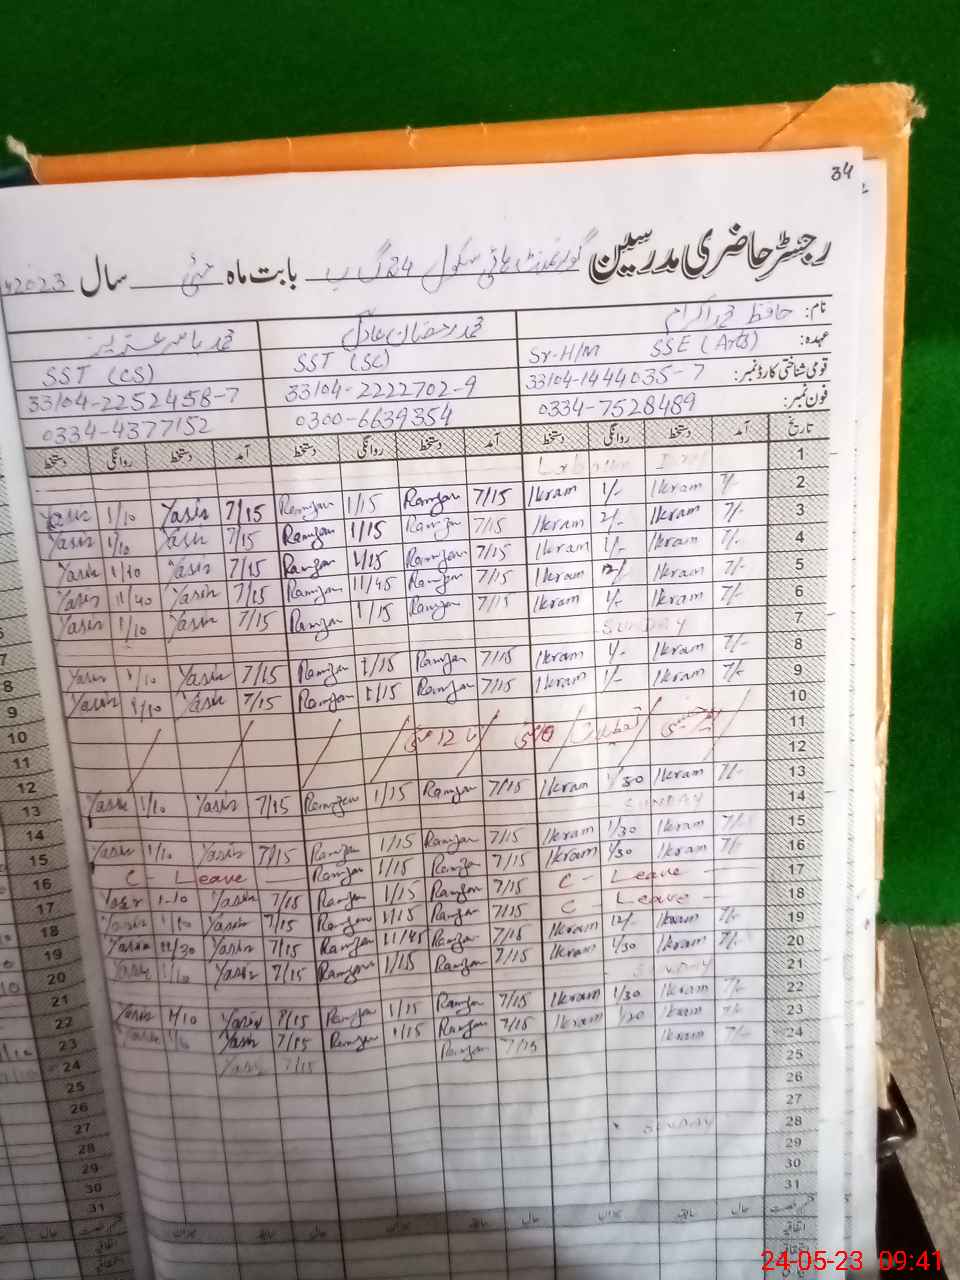 34
رجسٹر حاضری مدرسین گورنمنٹ ہائی سکول 24 گ ب بابت ماہ مئی سال 2023
نام: حافظ محمد اکرام محمد رمضان عادل محمد یاسر
عہدہ: Sr-H/M SSE (Arts) SST (Sc) SST (CS)
قومی شناختی کارڈ نمبر: 33104-1444035-7 33104-2222702-9 33104-2252458-7
فون نمبر: 0334-7528489 0300-6639354 0334-4377152
تاریخ آمد دستخط روانگی دستخط آمد دستخط روانگی دستخط آمد دستخط روانگی دستخط
1
2 7/- Ikram 1/- Ikram 7/15 Ramzan 1/15 Ramzan 7/15 Yasir 1/10 Yasir
3 7/- Ikram 2/- Ikram 7/15 Ramzan 1/15 Ramzan 7/15 Yasir 1/10 Yasir
4 7/- Ikram 1/- Ikram 7/15 Ramzan 1/15 Ramzan 7/15 Yasir 1/10 Yasir
5 7/- Ikram 12/- Ikram 7/15 Ramzan 11/45 Ramzan 7/15 Yasir 11/40 Yasir
6 7/- Ikram 1/- Ikram 7/15 Ramzan 1/15 Ramzan 7/15 Yasir 1/10 Yasir
7 SUNDAY
8 7/- Ikram 1/- Ikram 7/15 Ramzan 1/15 Ramzan 7/15 Yasir 1/10 Yasir
9 7/- Ikram 1/- Ikram 7/15 Ramzan 1/15 Ramzan 7/15 Yasir 1/10 Yasir
10
11 تعطیلات 10 مئی تا 12 مئی
12
13 7/- Ikram 1/30 Ikram 7/15 Ramzan 1/15 Ramzan 7/15 Yasir 1/10 Yasir
14 SUNDAY
15 7/- Ikram 1/30 Ikram 7/15 Ramzan 1/15 Ramzan 7/15 Yasir 1/10 Yasir
16 7/- Ikram 1/30 Ikram 7/15 Ramzan 1/15 Ramzan C - Leave
17 C - Leave 7/15 Ramzan 1/15 Ramzan 7/15 Yasir 1-10 Yasir
18 C - Leave 7/15 Ramzan 1/15 Ramzan 7/15 Yasir 1/10 Yasir
19 7/- Ikram 12/- Ikram 7/15 Ramzan 11/45 Ramzan 7/15 Yasir 11/30 Yasir
20 7/- Ikram 1/30 Ikram 7/15 Ramzan 1/15 Ramzan 7/15 Yasir 1/10 Yasir
21 SUNDAY
22 7/- Ikram 1/30 Ikram 7/15 Ramzan 1/15 Ramzan 7/15 Yasir 1/10 Yasir
23 7/- Ikram 1/30 Ikram 7/15 Ramzan 1/15 Ramzan 7/15 Yasir
24 7/- Ikram 7/15 Ramzan 7/15 Yasir
25
26
27
28 SUNDAY
29
30
31
24-05-23 09:41